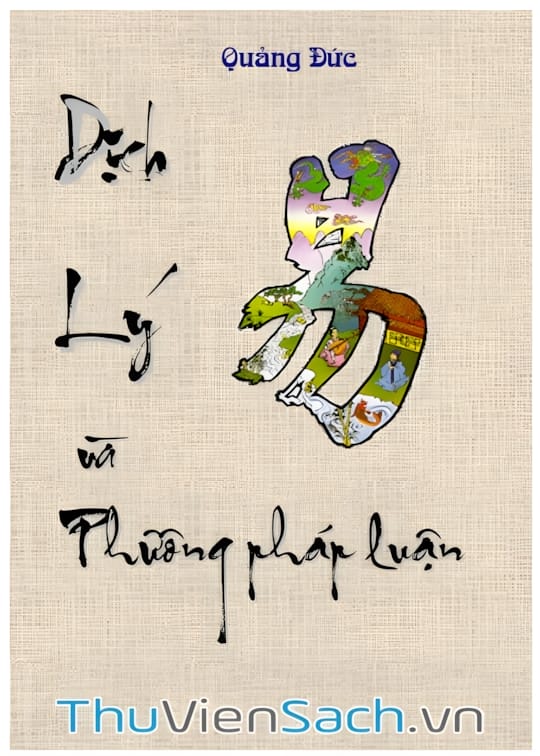 Quảng Đức
Dịch
Lý
易
và
Phương pháp luận
ThuVienSach.vn